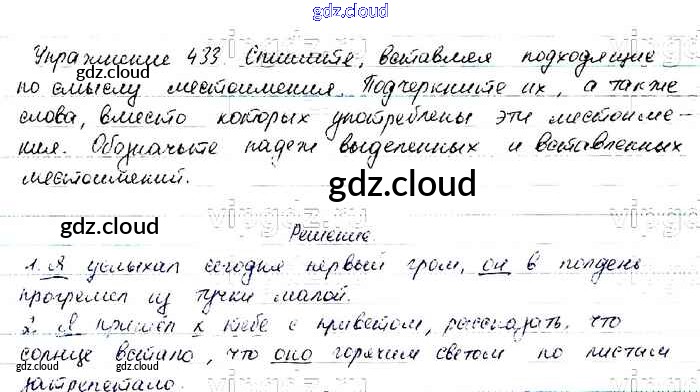 gdz.cloud
Упражнение 433. Спишите, вставляя подходящие
gdz.cloud
по смыслу местоимения. Подчеркните их, а также
слова, вместо которых употреблены эти местоиме-
ния. Обозначьте падеж выделенных и вставленных
местоимений.
gdz.cloud
gdz.cloud
Решение.
1. Я услыхал сегодня первый гром, он в полдень
прогремел из тучки малой.
2. Я пришел к тебе с приветом, рассказать, что
солнце встало, что оно горячим светом по листам
gdz.cloud gdz.cloud gdz.cloud
затрепетало.